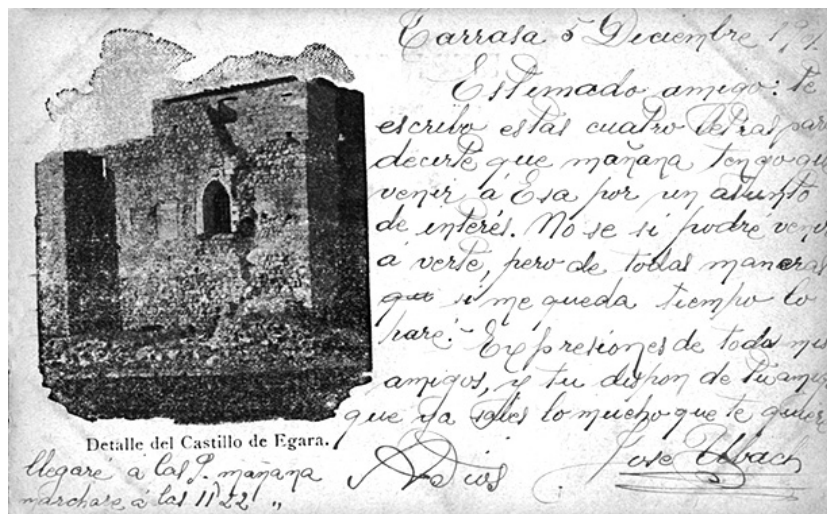 Tarrasa 5 Diciembre 19
Estimado amigo: te
escribo estas cuatro letras para
decirte que mañana tengo que
venir á Esa por un asunto
de interés. No se si podré venir
á verte, pero de todas maneras
que si me queda tiempo lo
haré. Expresiones de todos mis
amigos, y tu dispon de tu amigo
que ya sabes lo mucho que te quiere
ADios José Ubach
Detalle del Castillo de Egara.
llegaré á las 9. mañana
marcharé á las 11'22 "